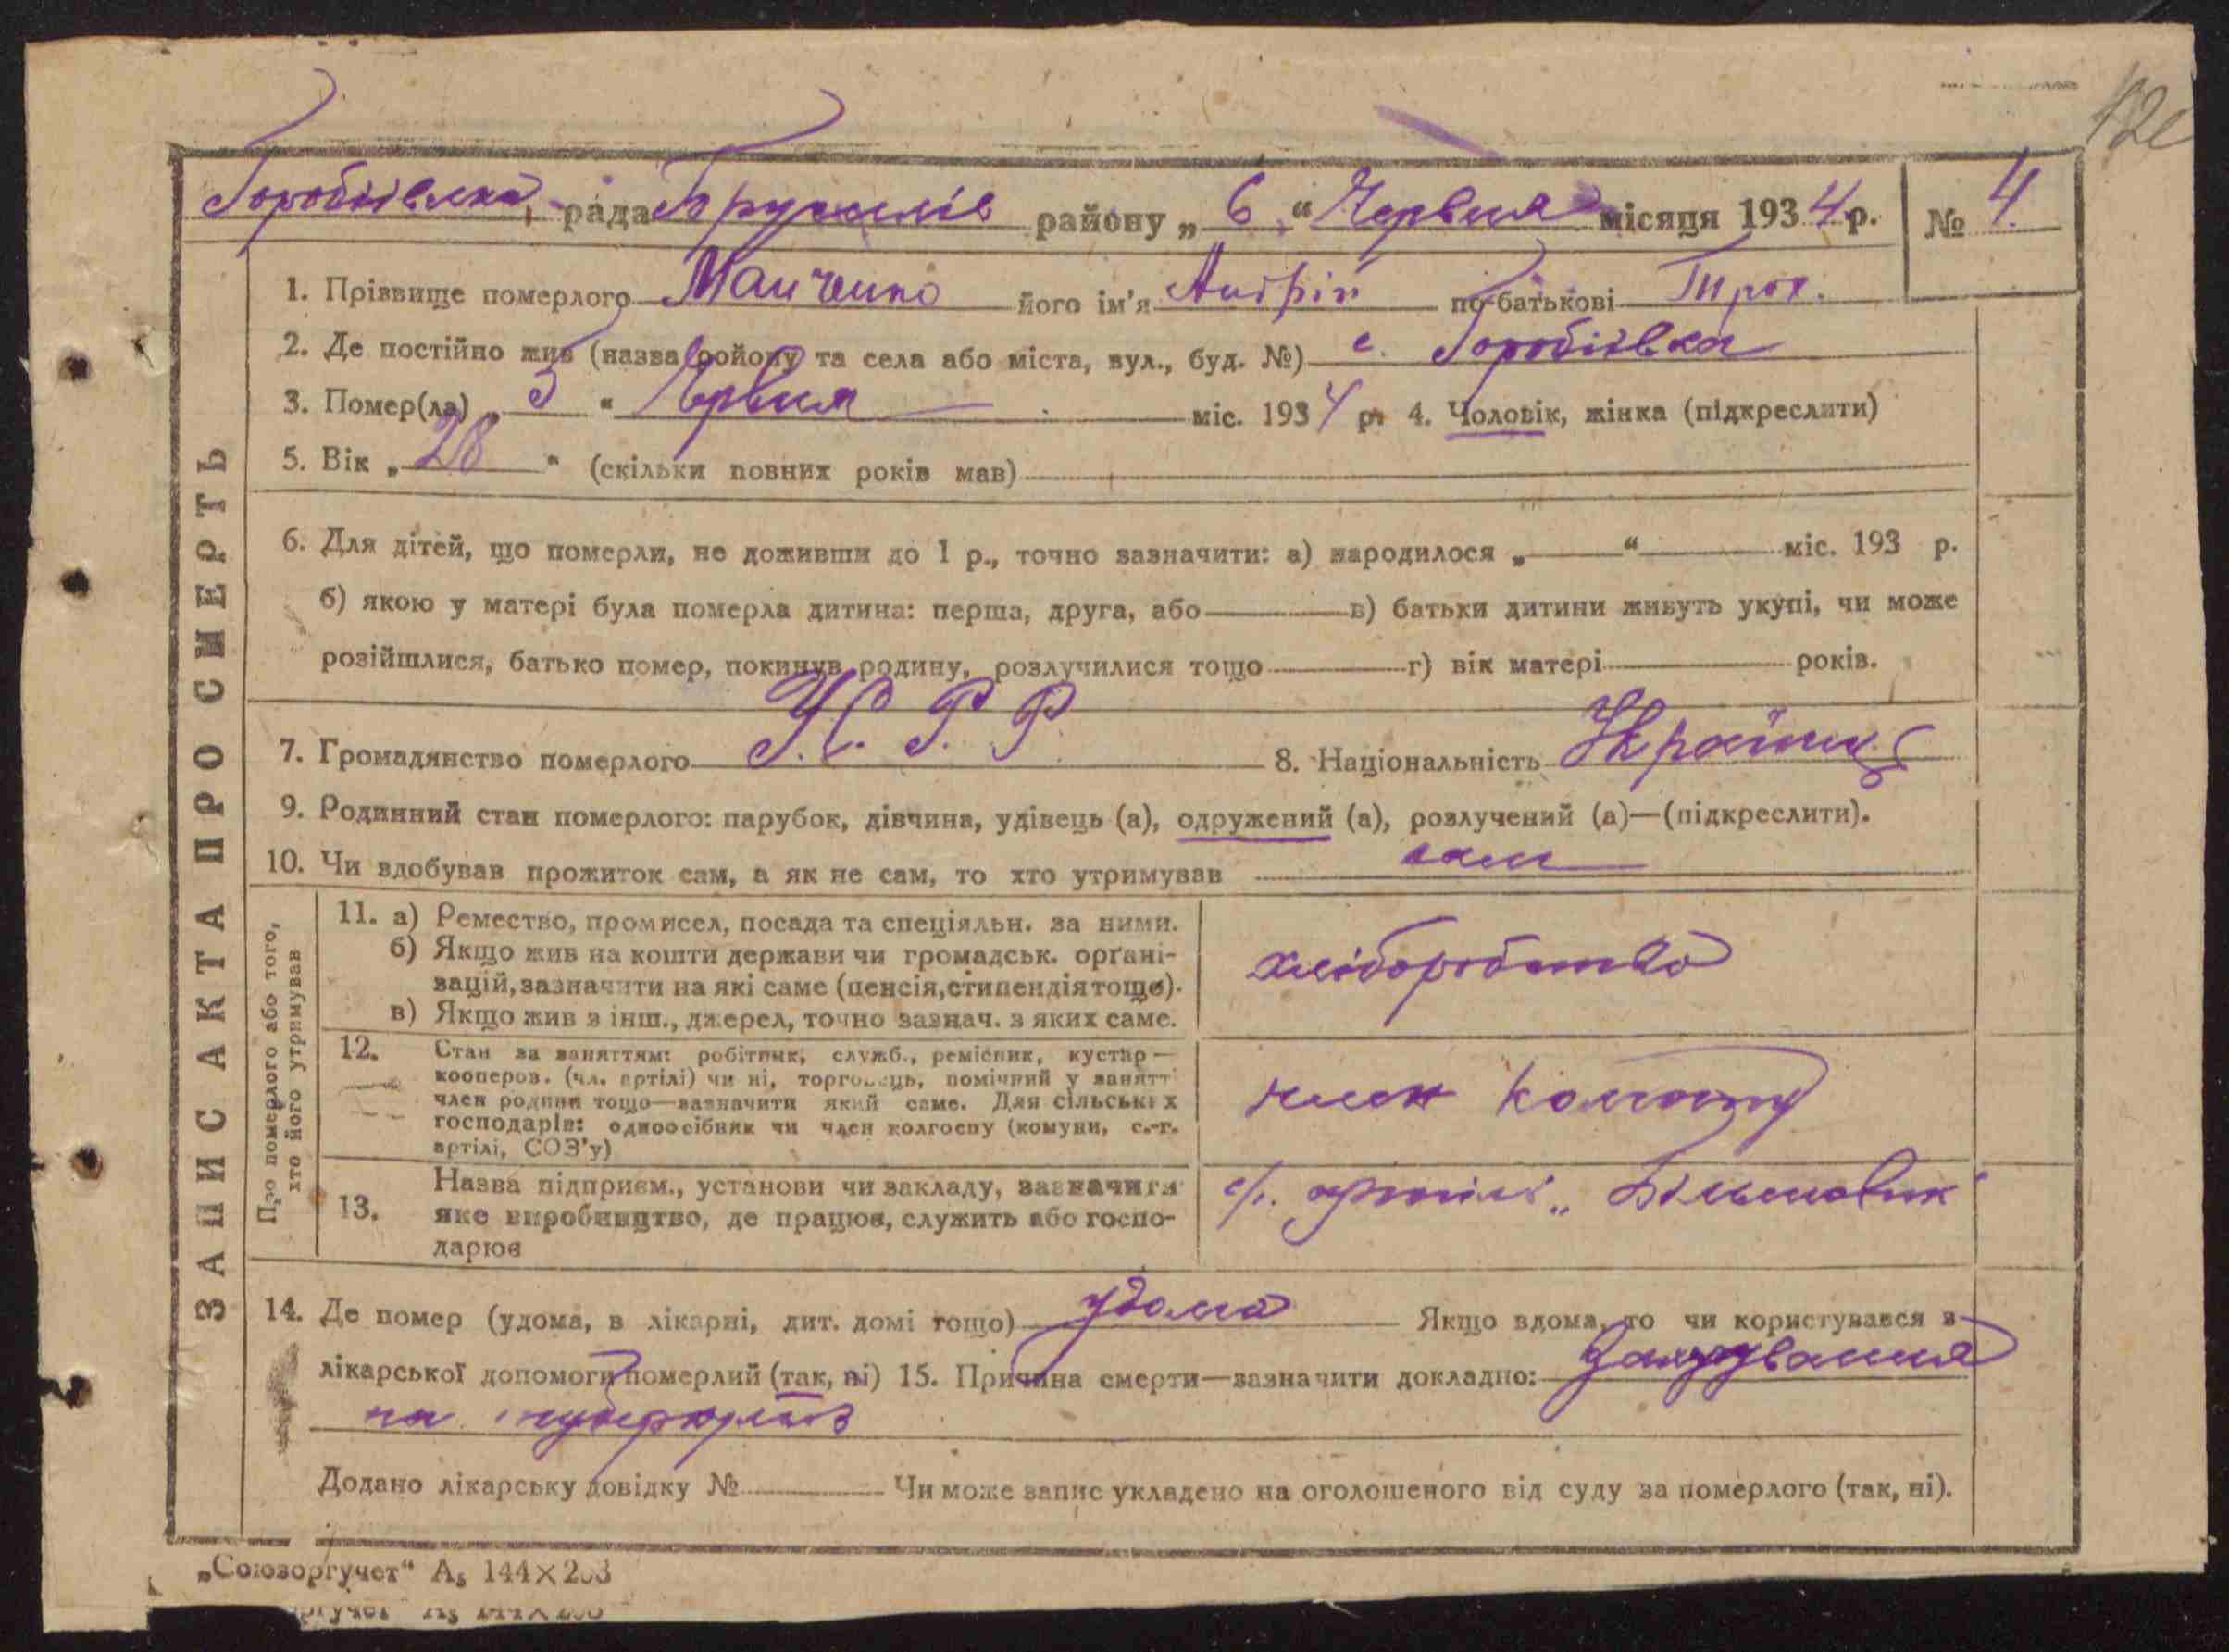 Горобіївська рада Брусилів району „ 6 “ Червня місяця 1934 р. № 4.
1. Прізвище померлого Манченко його ім'я Андрій по-батькові Трох.
2. Де постійно жив (назва ройону та села або міста, вул., буд. №) с. Горобіївка
3. Помер(ла) „ 3 “ Червня міс. 1934 р. 4. Чоловік, жінка (підкреслити)
5. Вік „ 28 “ (скільки повних років мав)
6. Для дітей, що померли, не доживши до 1 р., точно зазначити: а) народилося „ “ міс. 193 р.
б) якою у матері була померла дитина: перша, друга, або в) батьки дитини живуть укупі, чи може
розійшлися, батько помер, покинув родину, розлучилися тощо г) вік матері років.
7. Громадянство померлого У.С.Р.Р. 8. Національність Українец
9. Родинний стан померлого: парубок, дівчина, удівець (а), одружений (а), розлучений (а)—(підкреслити).
10. Чи здобував прожиток сам, а як не сам, то хто утримував сам
ЗАПИС АКТА ПРО СМЕРТЬ
Про померлого або того,
хто його утримував
11. а) Ремество, промисел, посада та спеціяльн. за ними.
б) Якщо жив на кошти держави чи громадськ. орґані-
зацій, зазначити на які саме (пенсія, стипендія тощо).
в) Якщо жив з інш., джерел, точно зазнач. з яких саме.
хліборобство
12. Стан за заняттям: робітник, служб., ремісник, кустар —
кооперов. (чл. артілі) чи ні, торговець, помічний у занятті
член родини тощо—зазначити який саме. Для сільських
господарів: одноосібник чи член колгоспу (комуни, с.-г.
артілі, СОЗ'у)
член колгоспу
13. Назва підприєм., установи чи закладу, зазначити
яке виробництво, де працює, служить або госпо-
дарює
с/г. артіль „Більшовик"
14. Де помер (удома, в лікарні, дит. домі тощо) удома Якщо вдома, то чи користувався з
лікарської допомоги померлий (так, ні) 15. Причина смерти—зазначити докладно:
на туберкульоз
Додано лікарську довідку № Чи може запис укладено на оголошеного від суду за померлого (так, ні).
„Союзоргучет“ А₅ 144×203